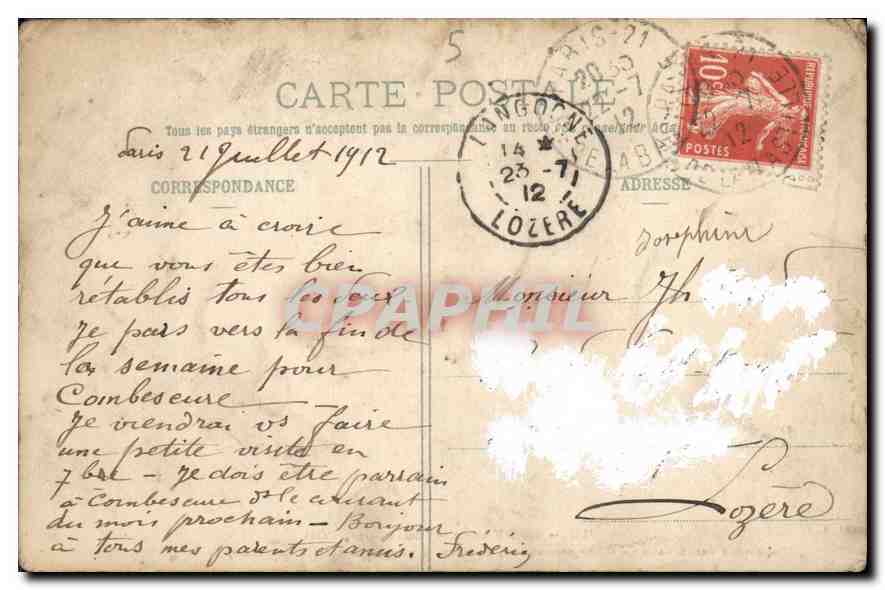 5
CARTE POSTALE
Tous les pays étrangers n'acceptent pas la correspondance au recto
Paris 21 Juillet 1912
CORRESPONDANCE
ADRESSE
J'aime à croire
que vous êtes bien
rétablis tous les deux
Je pars vers la fin de
la semaine pour
Combescure
Je viendrai vs faire
une petite visite en
7bre – Je dois être parrain
à Combescure ds le courant
du mois prochain – Bonjour
à tous mes parents et amis. Frédéric
Joséphine
Monsieur Jh
Lozère
LANGOGNE
14 *
23 -7
12
LOZERE
PARIS-21
REPUBLIQUE FRANÇAISE
10c
POSTES
CPAPHIL